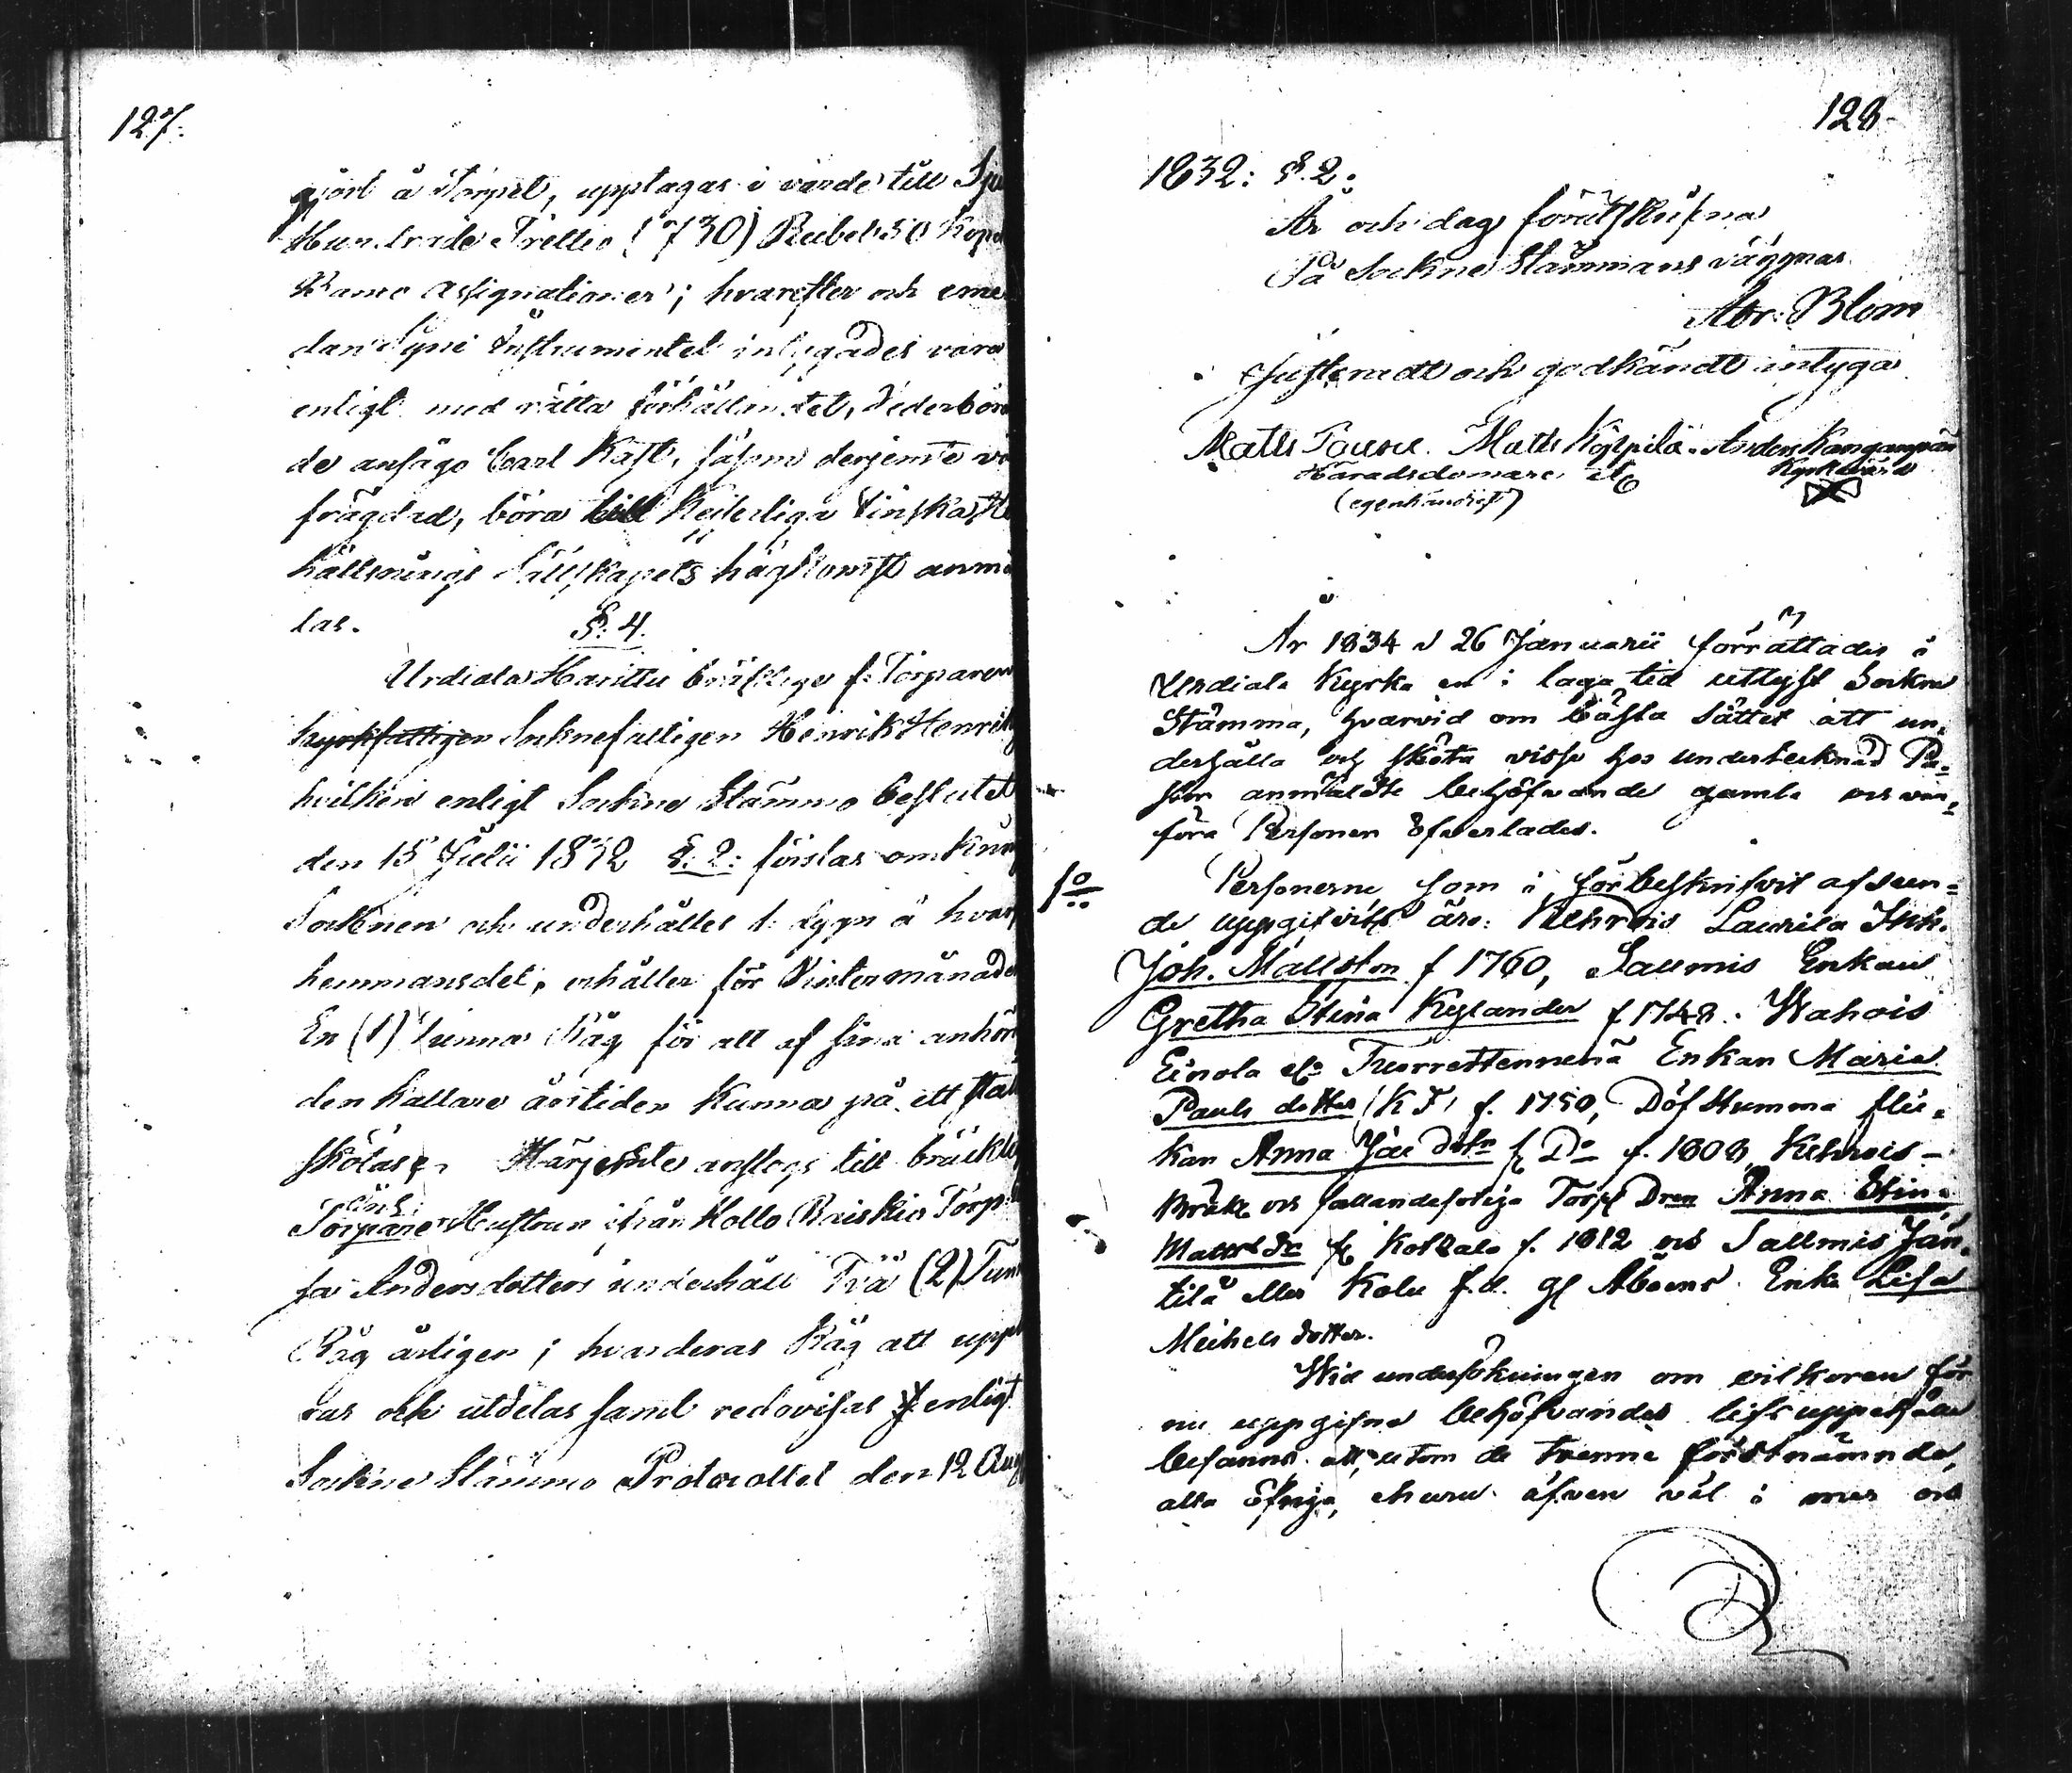 127.
gjort å Torpet, upptagas i värde till Sju
Hundrade Trettio (730) Rubel 50 Kop
Banco Assignationer; hvarefter och eme
dan Syne Instrumentet intygades vara
enligt med rätta förhållandet, vederböran
de ansågo Carl Kast, såsom derjemte
frägdad, böra till Kejserliga Finska
hållnings Sällskapets höglovigt anmä
las. §. 4.
Urdiala Harittu bräcklige f. Torparen
kyrkfattigen Socknefattigen Henrik Henrik
hvilken enligt Sockne Stämmo beslutet
den 15 Julii 1832 §: 2: förslas omkring
Socknen och underhålles 1 dygn å hvar
hemmansdel, erhåller för Vintermånader
En (1) Tunna Råg för att af sina anhör
den kallare årstiden kunna på ett stäl
skötas. Härjemte anslogs till bräckl
Enk.
Torpare Hustrun ifrån Hollo Raiskio Torp
sa Andersdotters underhåll Två (2) Tun
Råg årligen; hvarderas Råg att upp
ras och utdelas samt redovisas enligt
Sockne Stämmo Protocollet den 12 Aug
128
1832: §. 2.
År och dag förutskrifna
På Sockne Stämmans vägnar
Abr: Blom
Justeradt och godkändt intyga
Matts Matts Köpilä. Anders Kanganpää
Häradsdomare Kyrkvärd
(egenhändigt)
År 1834 d 26 Januarii förrättades i
Urdiala Kyrka en i laga tid utlyst Sockne
Stämma, hvarvid om bästa sättet att un=
derhålla och sköta visse hos undertecknad Pa=
stor anmäldte behöfvande gamle och van=
föra Personer öfverlades.
1o Personerne som i förbeskrifvit afseen=
de uppgifvits äro: Kehrois Laurila Inh.
Joh. Mattsson f 1760, Salmis Enkan
Gretha Stina Kylander f 1748. Wahois
Einola Enkan Maria
Pauls dotter f. 1750, Döfstumma flic=
kan Anna Jac dotr f Do f. 1808, Kehrois
Bräkl och fallandesotiga Torp Dren Anna Stina
Matts Dr f Kokkala f. 1812 och Salmis Jun=
tila eller Kolu f.d. Åboens Enka Lisa
Michels dotter.
Wid undersökningen om vilkoren för
nu uppgifne behöfvandes lifsuppehälle
befanns att, utom de trenne förstnämnde,
alla öfriga, ehuru äfven väl i mer och